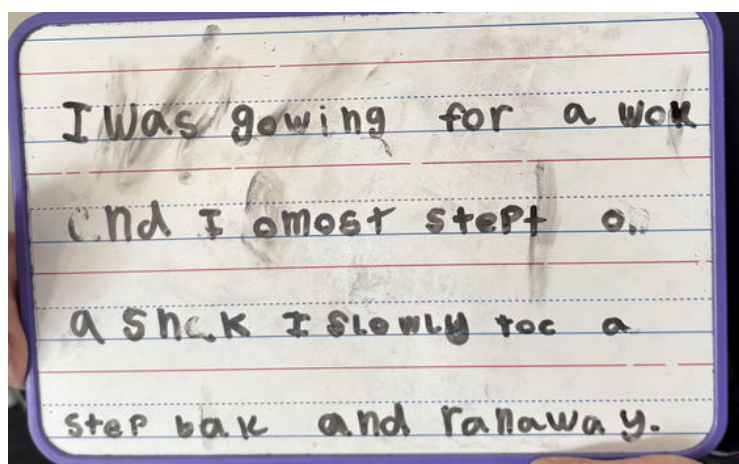 I was gowing for a wok
and I omost stept on
a snak I slowly toc a
step bak and ranaway.